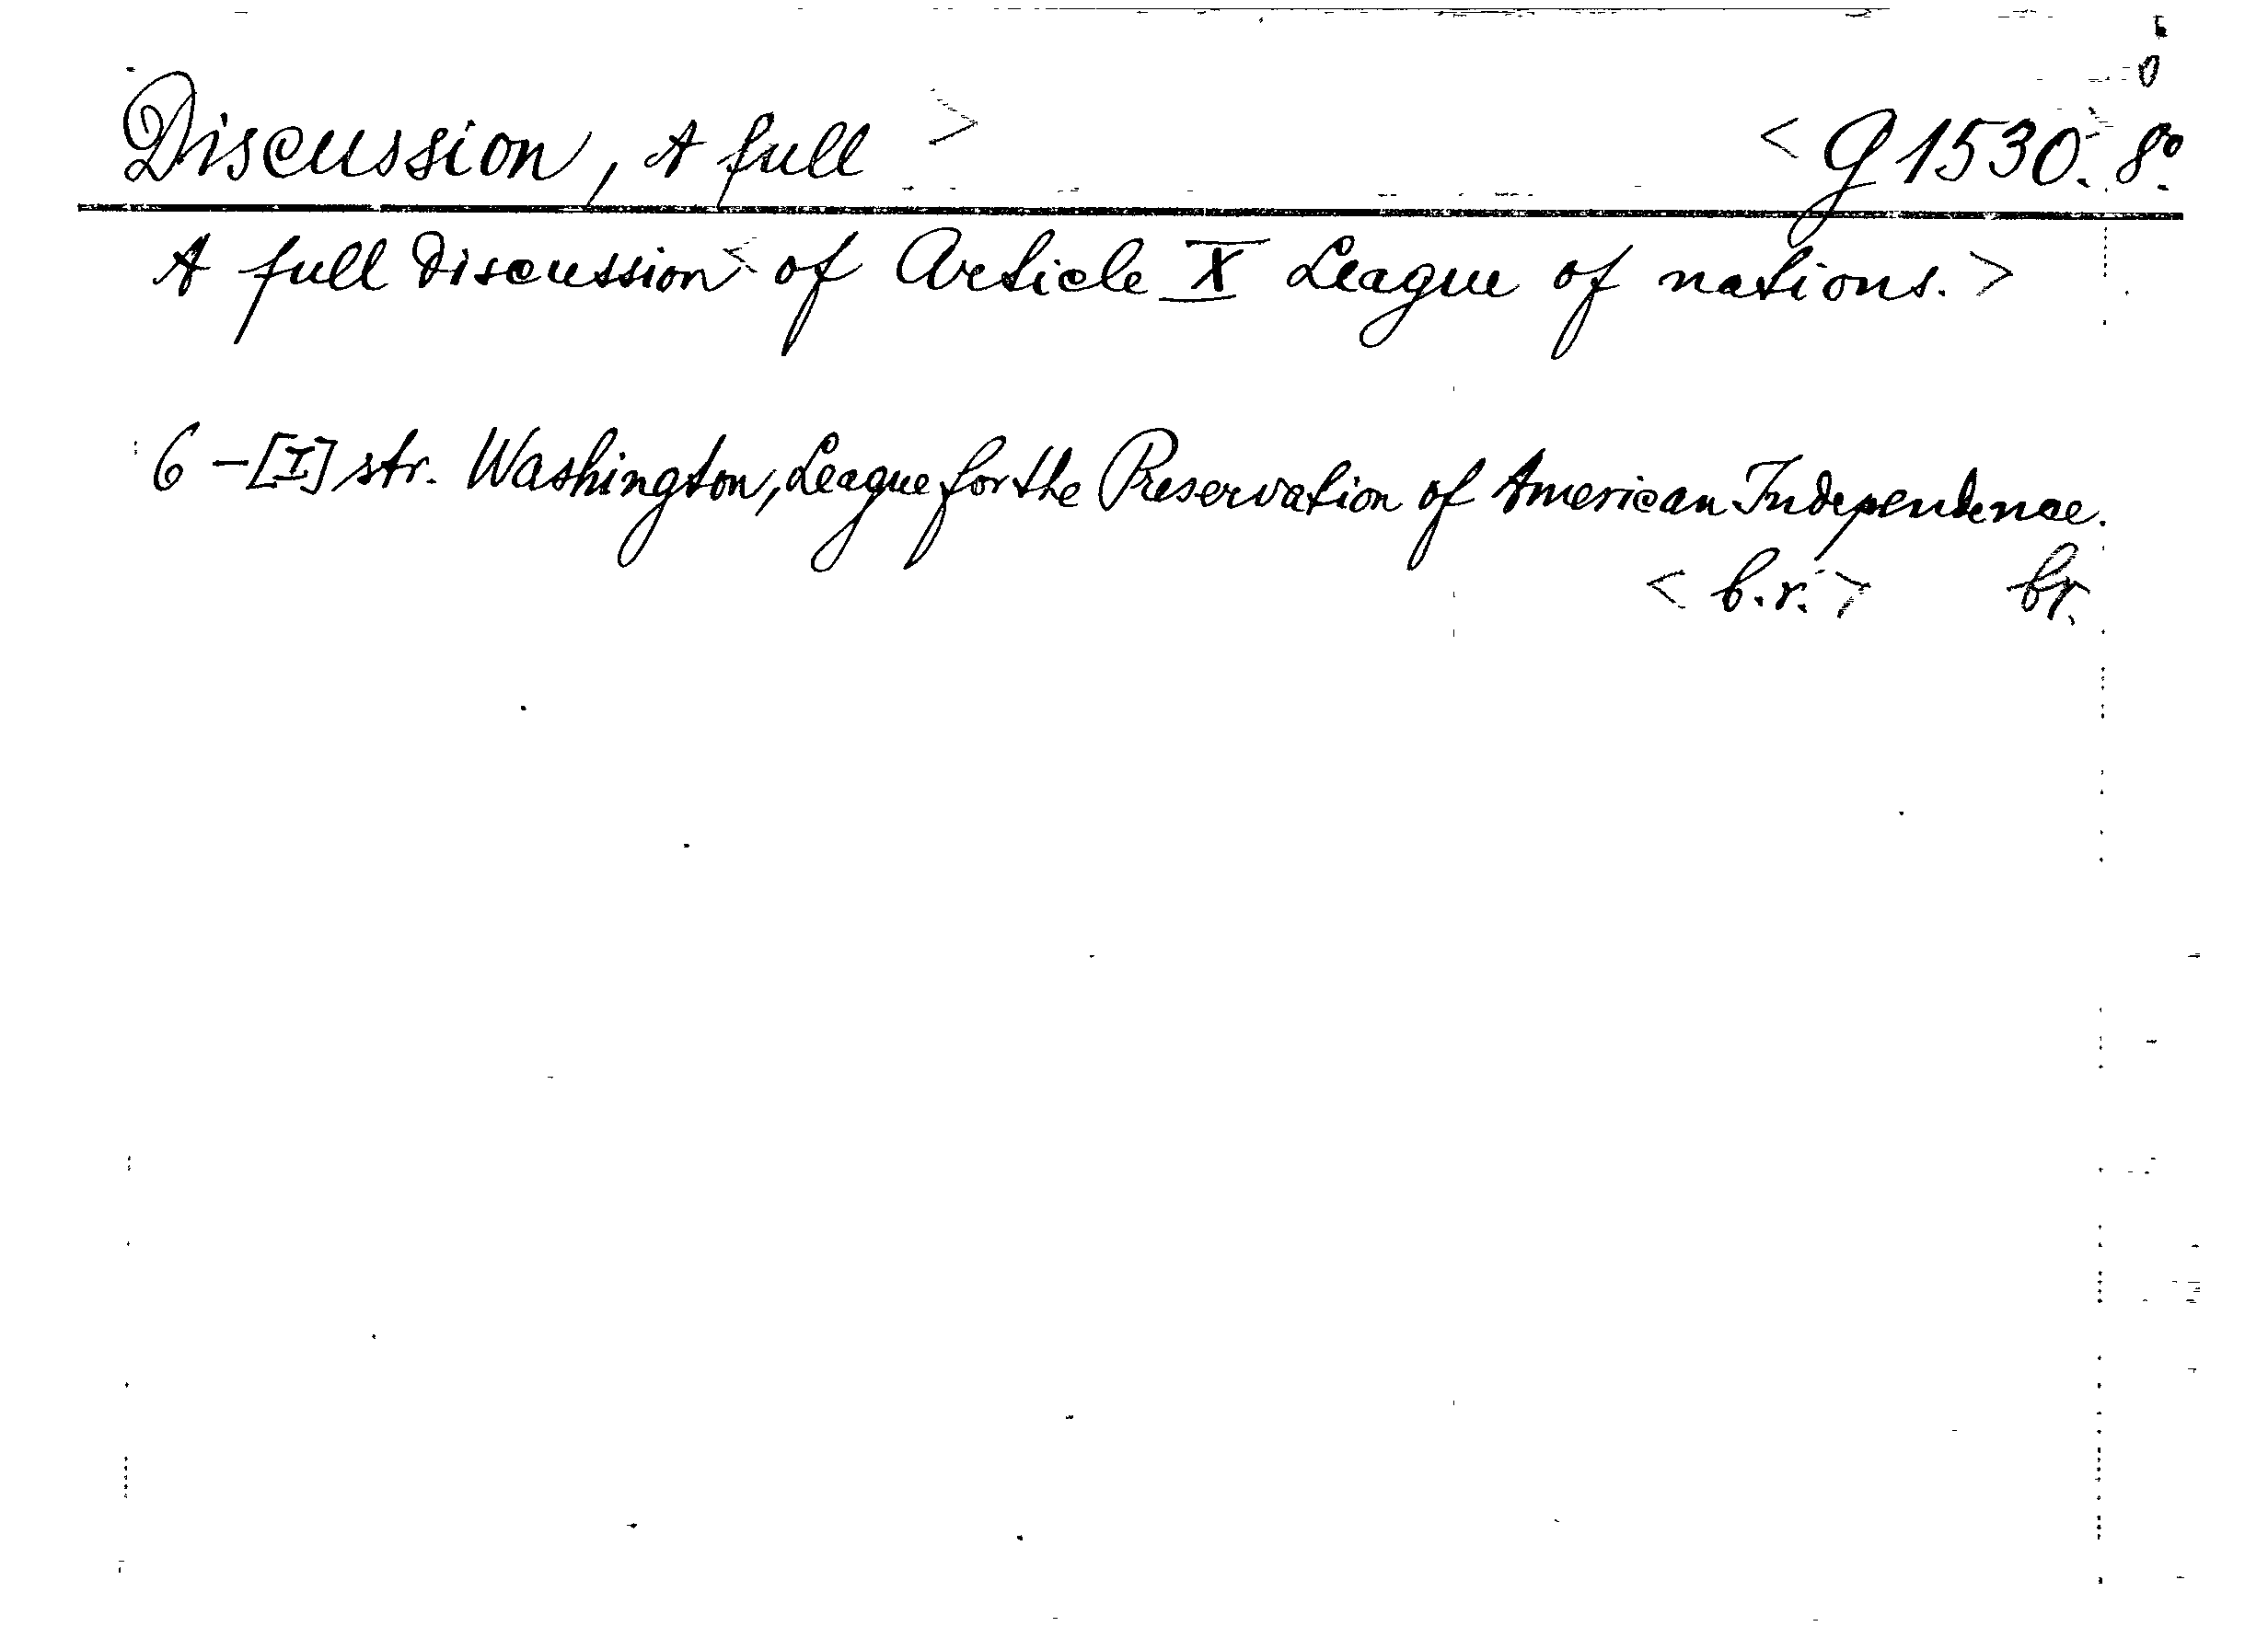 Discussion, A full > < g 1530. 8º.
A full Discussion < of Article X League of nations. >
6 - [I] str. Washington, League for the Preservation of American Independence.
< b.r. > br.